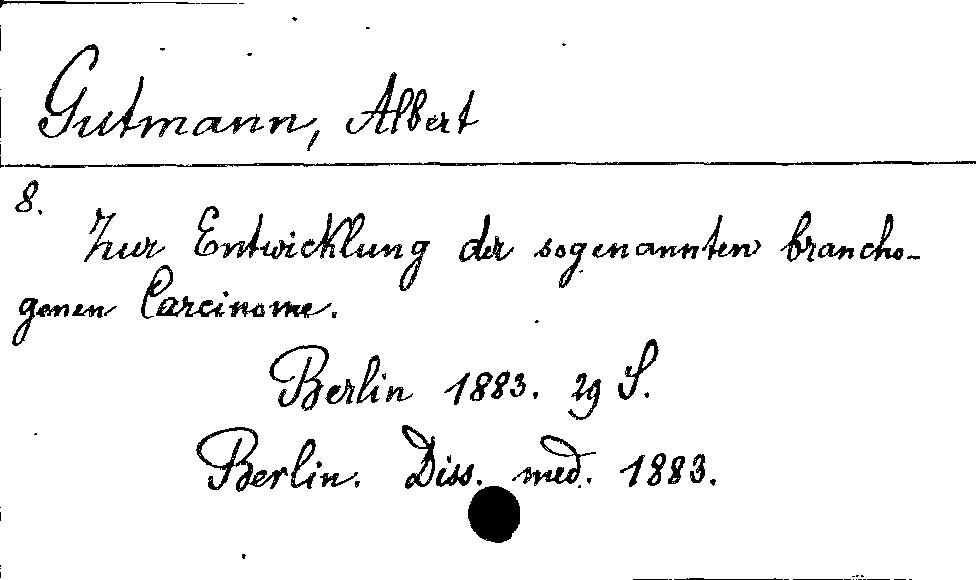 Gutmann, Albert
8.
Zur Entwicklung der sogenannten brancho-
genen Carcinome.
Berlin 1883. 29 S.
Berlin. Diss. med. 1883.